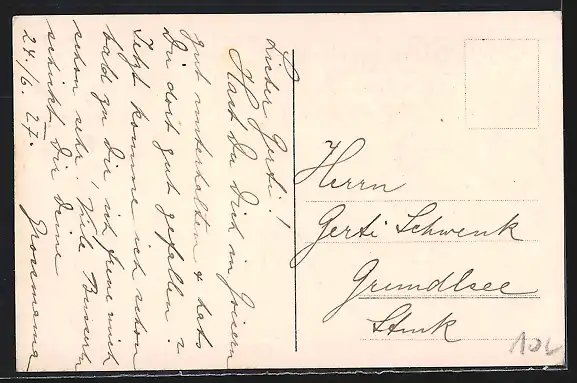 Lieber Gerti!
Hast Du Dich in Goisern
gut unterhalten & hats
Dir dort gut gefallen?
Jetzt komme ich schon
bald zu Dir, ich freue mich
schon sehr! Viele Busserln
schickt Dir Deine
24./6. 27. Grossmama
Herrn
Gerti Schwenk
Grundlsee
Stmk